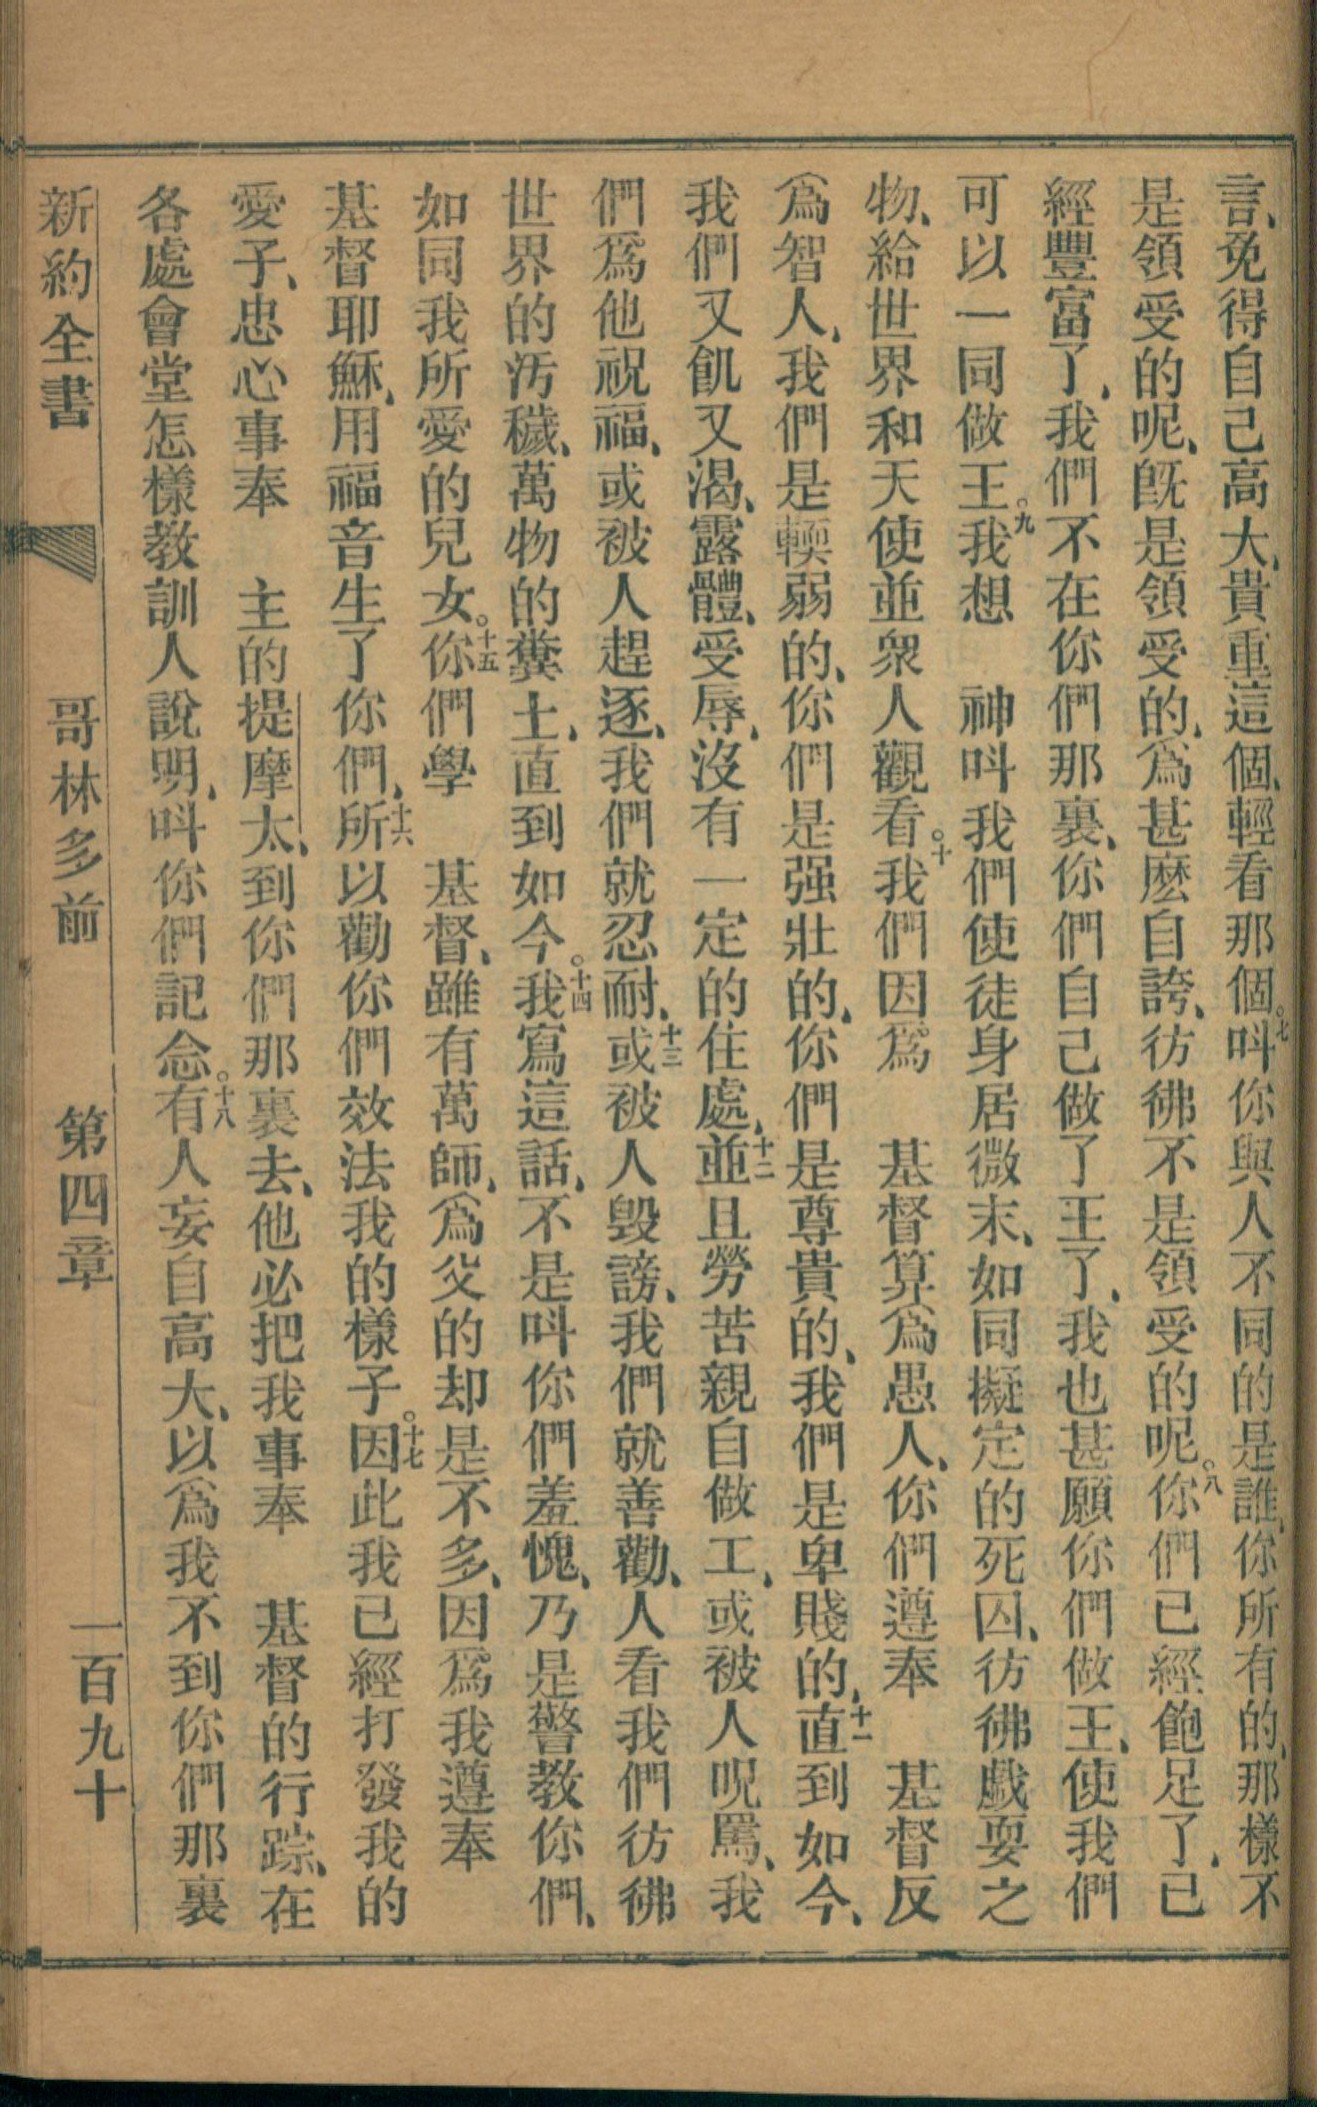 言、免得自己高大、貴重這個、輕看那個。七叫你與人不同的是誰、你所有的、那樣不
是領受的呢、旣是領受的、爲甚麽自誇、彷彿不是領受的呢。八你們已經飽足了、已
經豐富了、我們不在你們那裏、你們自己做了王了、我也甚願你們做王、使我們
可以一同做王。九我想　神叫我們使徒身居微末、如同擬定的死囚、彷彿戲耍之
物、給世界和天使並衆人觀看。十我們因爲　基督算爲愚人、你們遵奉　基督反
爲智人、我們是輭弱的、你們是强壯的、你們是尊貴的、我們是卑賤的、十一直到如今、
我們又飢又渴、露體、受辱、沒有一定的住處、十二並且勞苦親自做工、或被人呪罵、我
們爲他祝福、或被人趕逐、我們就忍耐、十三或被人毀謗、我們就善勸、人看我們彷彿
世界的汚穢、萬物的糞土、直到如今。十四我寫這話、不是叫你們羞愧、乃是警敎你們、
如同我所愛的兒女。十五你們學　基督、雖有萬師、爲父的却是不多、因爲我遵奉
基督耶穌、用福音生了你們、十六所以勸你們效法我的樣子。十七因此我已經打發我的
愛子、忠心事奉　主的提摩太、到你們那裏去、他必把我事奉　基督的行踪、在
各處會堂怎樣敎訓人說明、叫你們記念。十八有人妄自高大、以爲我不到你們那裏
新約全書　哥林多前　第四章　一百九十